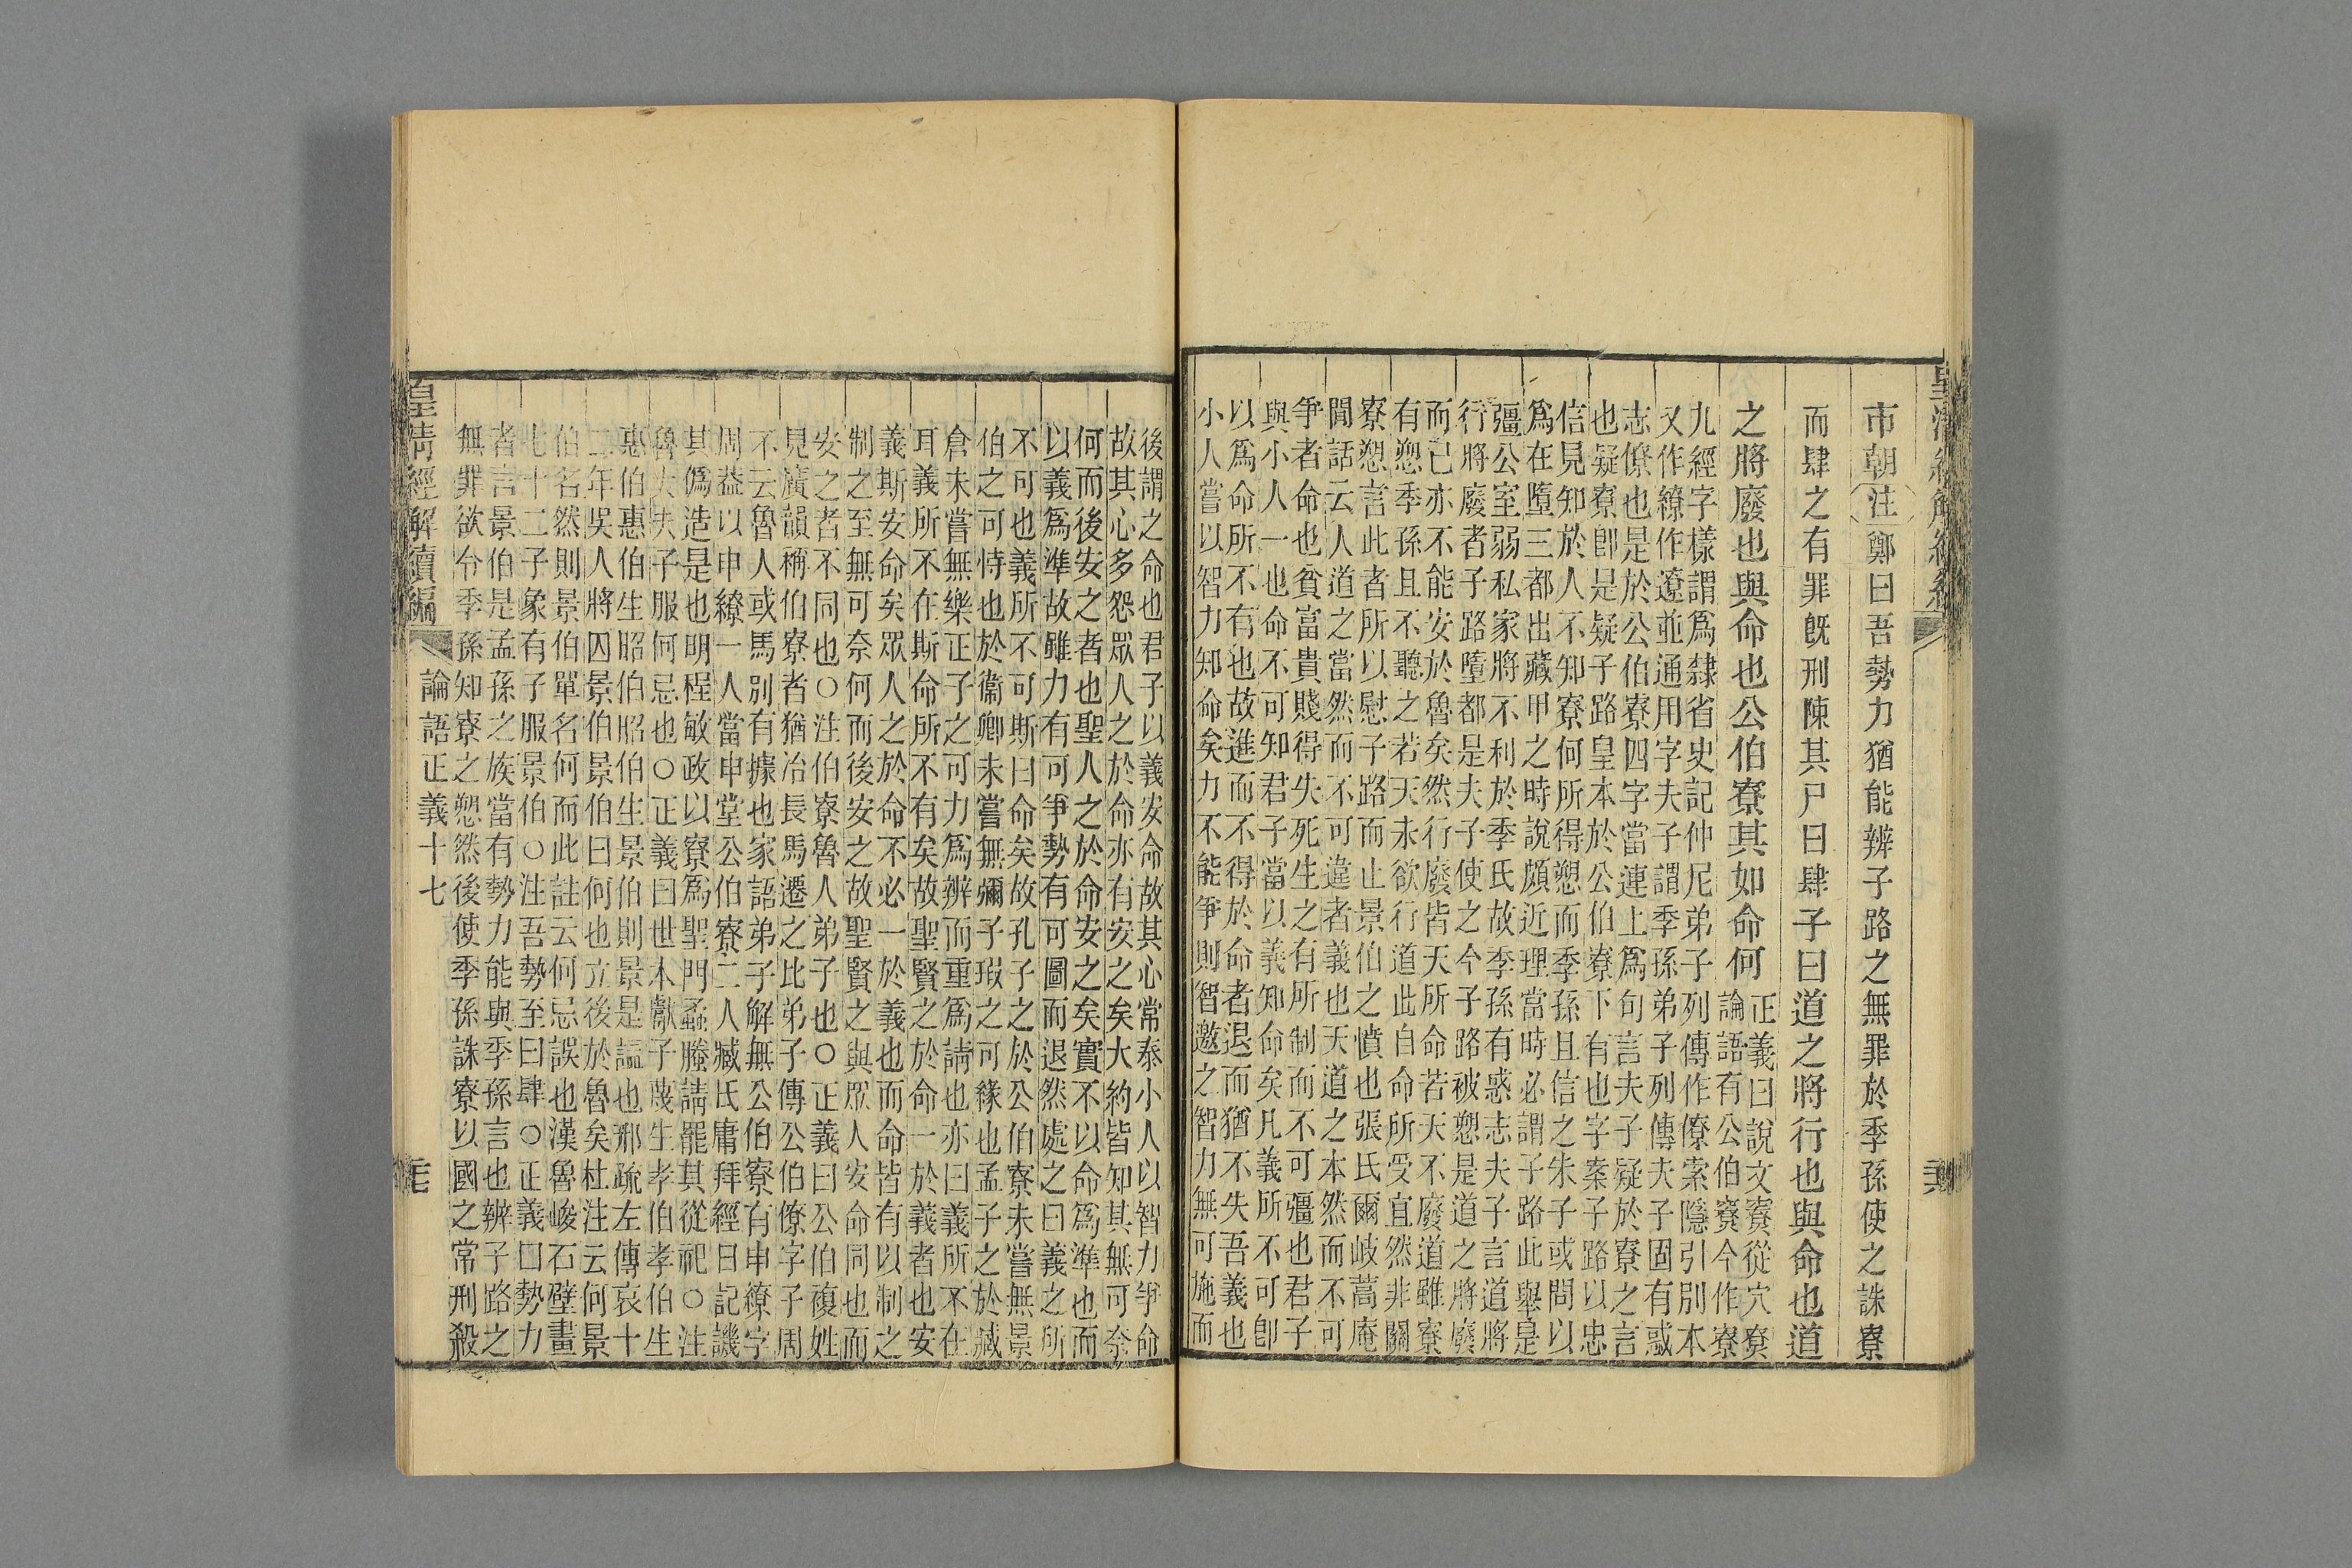 皇清經解續編
市朝注鄭曰吾勢力猶能辨子路之無罪於季孫使之誅寮
而肆之有罪旣刑陳其尸曰肆子曰道之將行也與命也道
之將廢也與命也公伯寮其如命何
正義曰說文寮從穴尞
論語有公伯寮今作寮
九經字樣謂爲隸省史記仲尼弟子列傳作僚索隱引別本
又作繚作遼並通用字夫子謂季孫弟子列傳夫子固有惑
志僚也是於公伯寮四字當連上爲句言夫子疑於寮之言
也疑寮卽是疑子路皇本於公伯寮下有也字案子路以忠
信見知於人不知寮何所得愬而季孫且信之朱子或問以
爲在墮三都出藏甲之時說頗近理當時必謂子路此舉是
彊公室弱私家將不利於季氏故季孫有惑志夫子言道將
行將廢者子路墮都是夫子使之今子路被愬是道之將廢
而已亦不能安於魯矣然行廢皆天所命若天不廢道雖寮
有愬季孫且不聽之若天未欲行道此自命所受宜然非關
寮愬言此者所以慰子路而止景伯之憤也張氏爾岐蒿庵
閒話云人道之當然而不可違者義也天道之本然而不可
爭者命也貧富貴賤得失死生之有所制而不可彊也君子
與小人一也命不可知君子當以義知命矣凡義所不可卽
以爲命所不有也故進而不得於命者退而猶不失吾義也
小人嘗以智力知命矣力不能爭則智邀之智力無可施而
後謂之命也君子以義安命故其心常泰小人以智力爭命
故其心多怨眾人之於命亦有安之矣大約皆知其無可奈
何而後安之者也聖人之於命安之矣實不以命爲準也而
以義爲準故雖力有可爭勢有可圖而退然處之曰義之所
不可也義所不可斯曰命矣故孔子之於公伯寮未嘗無景
伯之可恃也於衞卿未嘗無彌子瑕之可緣也孟子之於臧
倉未嘗無樂正子之可力爲辨而重爲請也亦曰義所不在
耳義所不在斯命所不有矣故聖賢之於命一於義者也安
義斯安命矣眾人之於命不必一於義也而命皆有以制之
制之至無可奈何而後安之故聖賢之與眾人安命同也而
安之者不同也○注伯寮魯人弟子也○正義曰公伯複姓
見廣韻稱伯寮者猶冶長馬遷之比弟子傳公伯僚字子周
不云魯人或馬別有據也家語弟子解無公伯寮有申繚字
周益以申繚一人當申堂公伯寮二人臧氏庸拜經日記譏
其僞造是也明程敏政以寮爲聖門蟊螣請罷其從祀○注
魯大夫子服何忌也○正義曰世本獻子蔑生孝伯孝伯生
惠伯惠伯生昭伯昭伯生景伯則景是謚也邢疏左傳哀十
二年吳人將囚景伯景伯曰何也立後於魯矣杜注云何景
伯名然則景伯單名何而此註云何忌誤也漢魯峻石壁畫
七十二子象有子服景伯○注吾勢至曰肆○正義曰勢力
者言景伯是孟孫之族當有勢力能與季孫言也辨子路之
無罪欲令季孫知寮之愬然後使季孫誅寮以國之常刑殺
皇清經解續編 論語正義十七